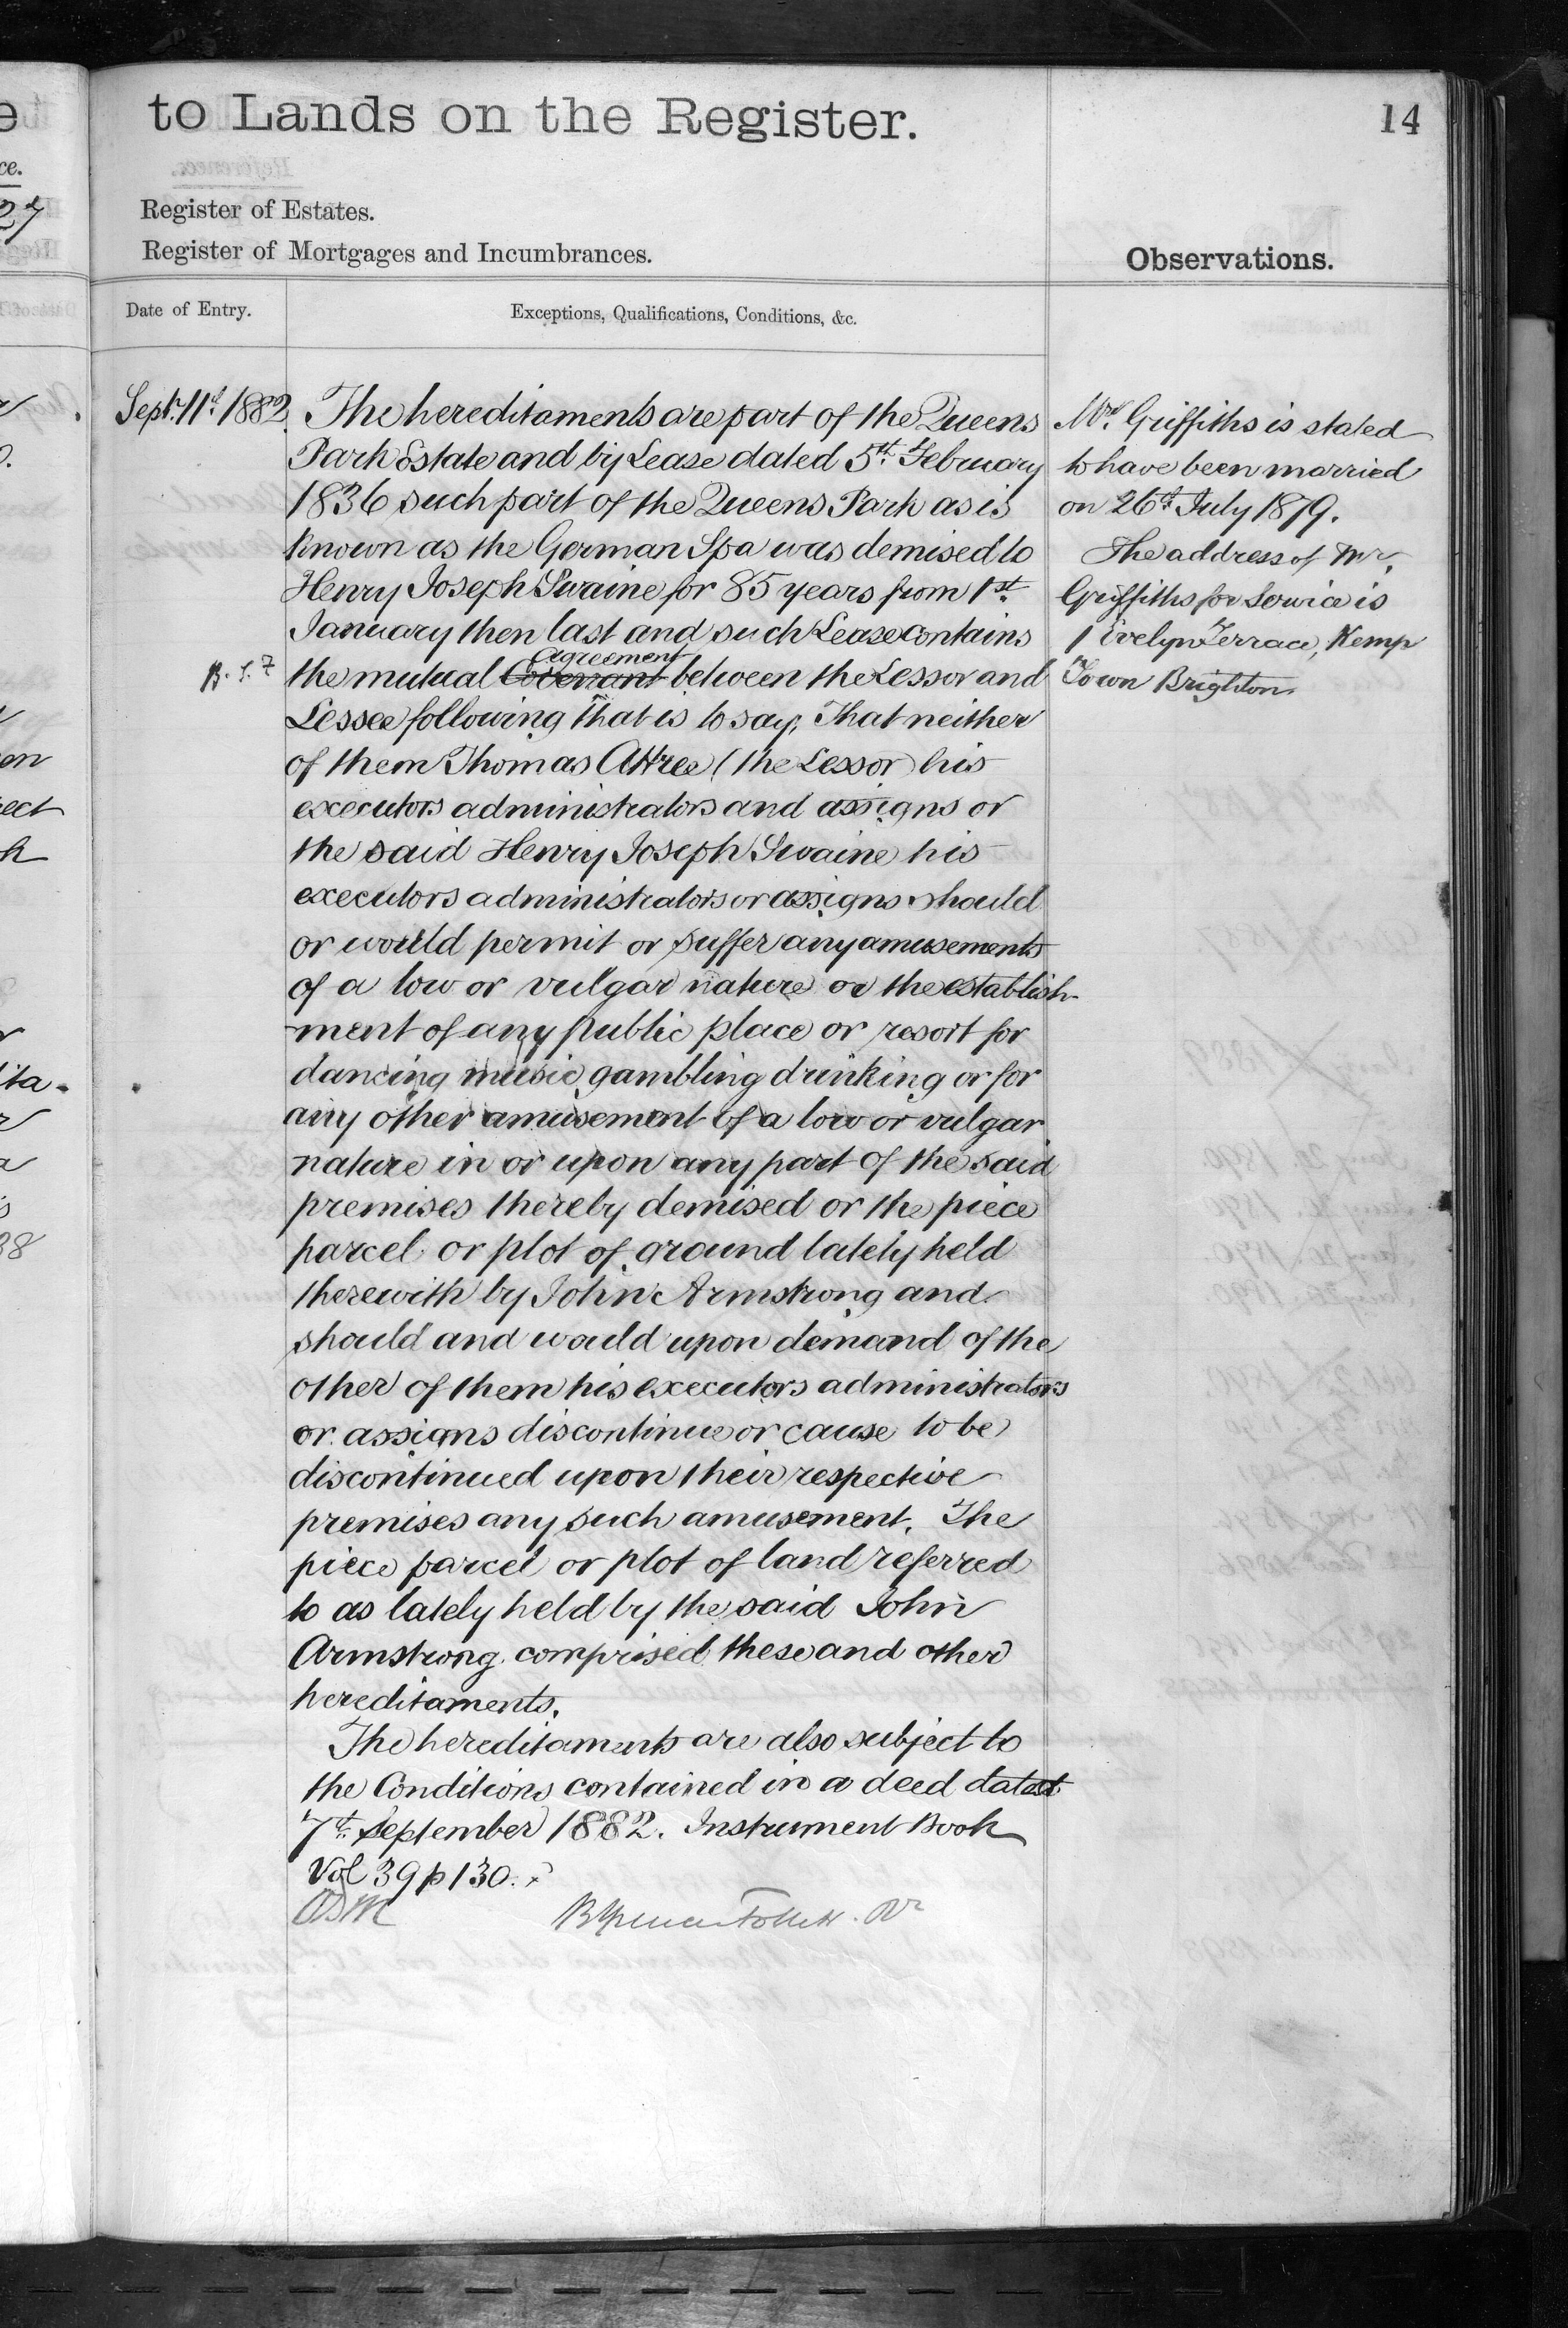 to Lands on the Register.
14
Register of Estates.
Register of Mortgages and Incumbrances.
Observations.
Date of Entry.
Exceptions, Qualifications, Conditions, &c.
Sept. 11th 1882
The hereditaments are part of the Queens
Park Estate and by Lease dated 5th February
1836 such part of the Queens Park as is
known as the German Spa was demised to
Henry Joseph Swaine for 85 years from 1st
January then last and such Lease contains
Agreement
B.S.F
the mutual Covenant between the Lessor and
Lessee following that is to say, That neither
of them Thomas Attree (the Lessor) his
executors administrators and assigns or
the said Henry Joseph Swaine his
executors administrators or assigns should
or would permit or suffer any amusements
of a low or vulgar nature or the establish-
ment of any public place or resort for
dancing music gambling drinking or for
any other amusement of a low or vulgar
nature in or upon any part of the said
premises thereby demised or the piece
parcel or plot of ground lately held
therewith by John Armstrong and
should and would upon demand of the
other of them his executors administrators
or assigns discontinue or cause to be
discontinued upon their respective
premises any such amusement. The
piece parcel or plot of land referred
to as lately held by the said John
Armstrong comprised these and other
hereditaments.
The hereditaments are also subject to
the Conditions contained in a deed dated
7th September 1882. Instrument Book
Vol 39 p 130.
Mrs. Griffiths is stated
to have been married
on 26th July 1879.
The address of Mr.
Griffiths for Service is
1 Evelyn Terrace, Kemp
Town Brighton